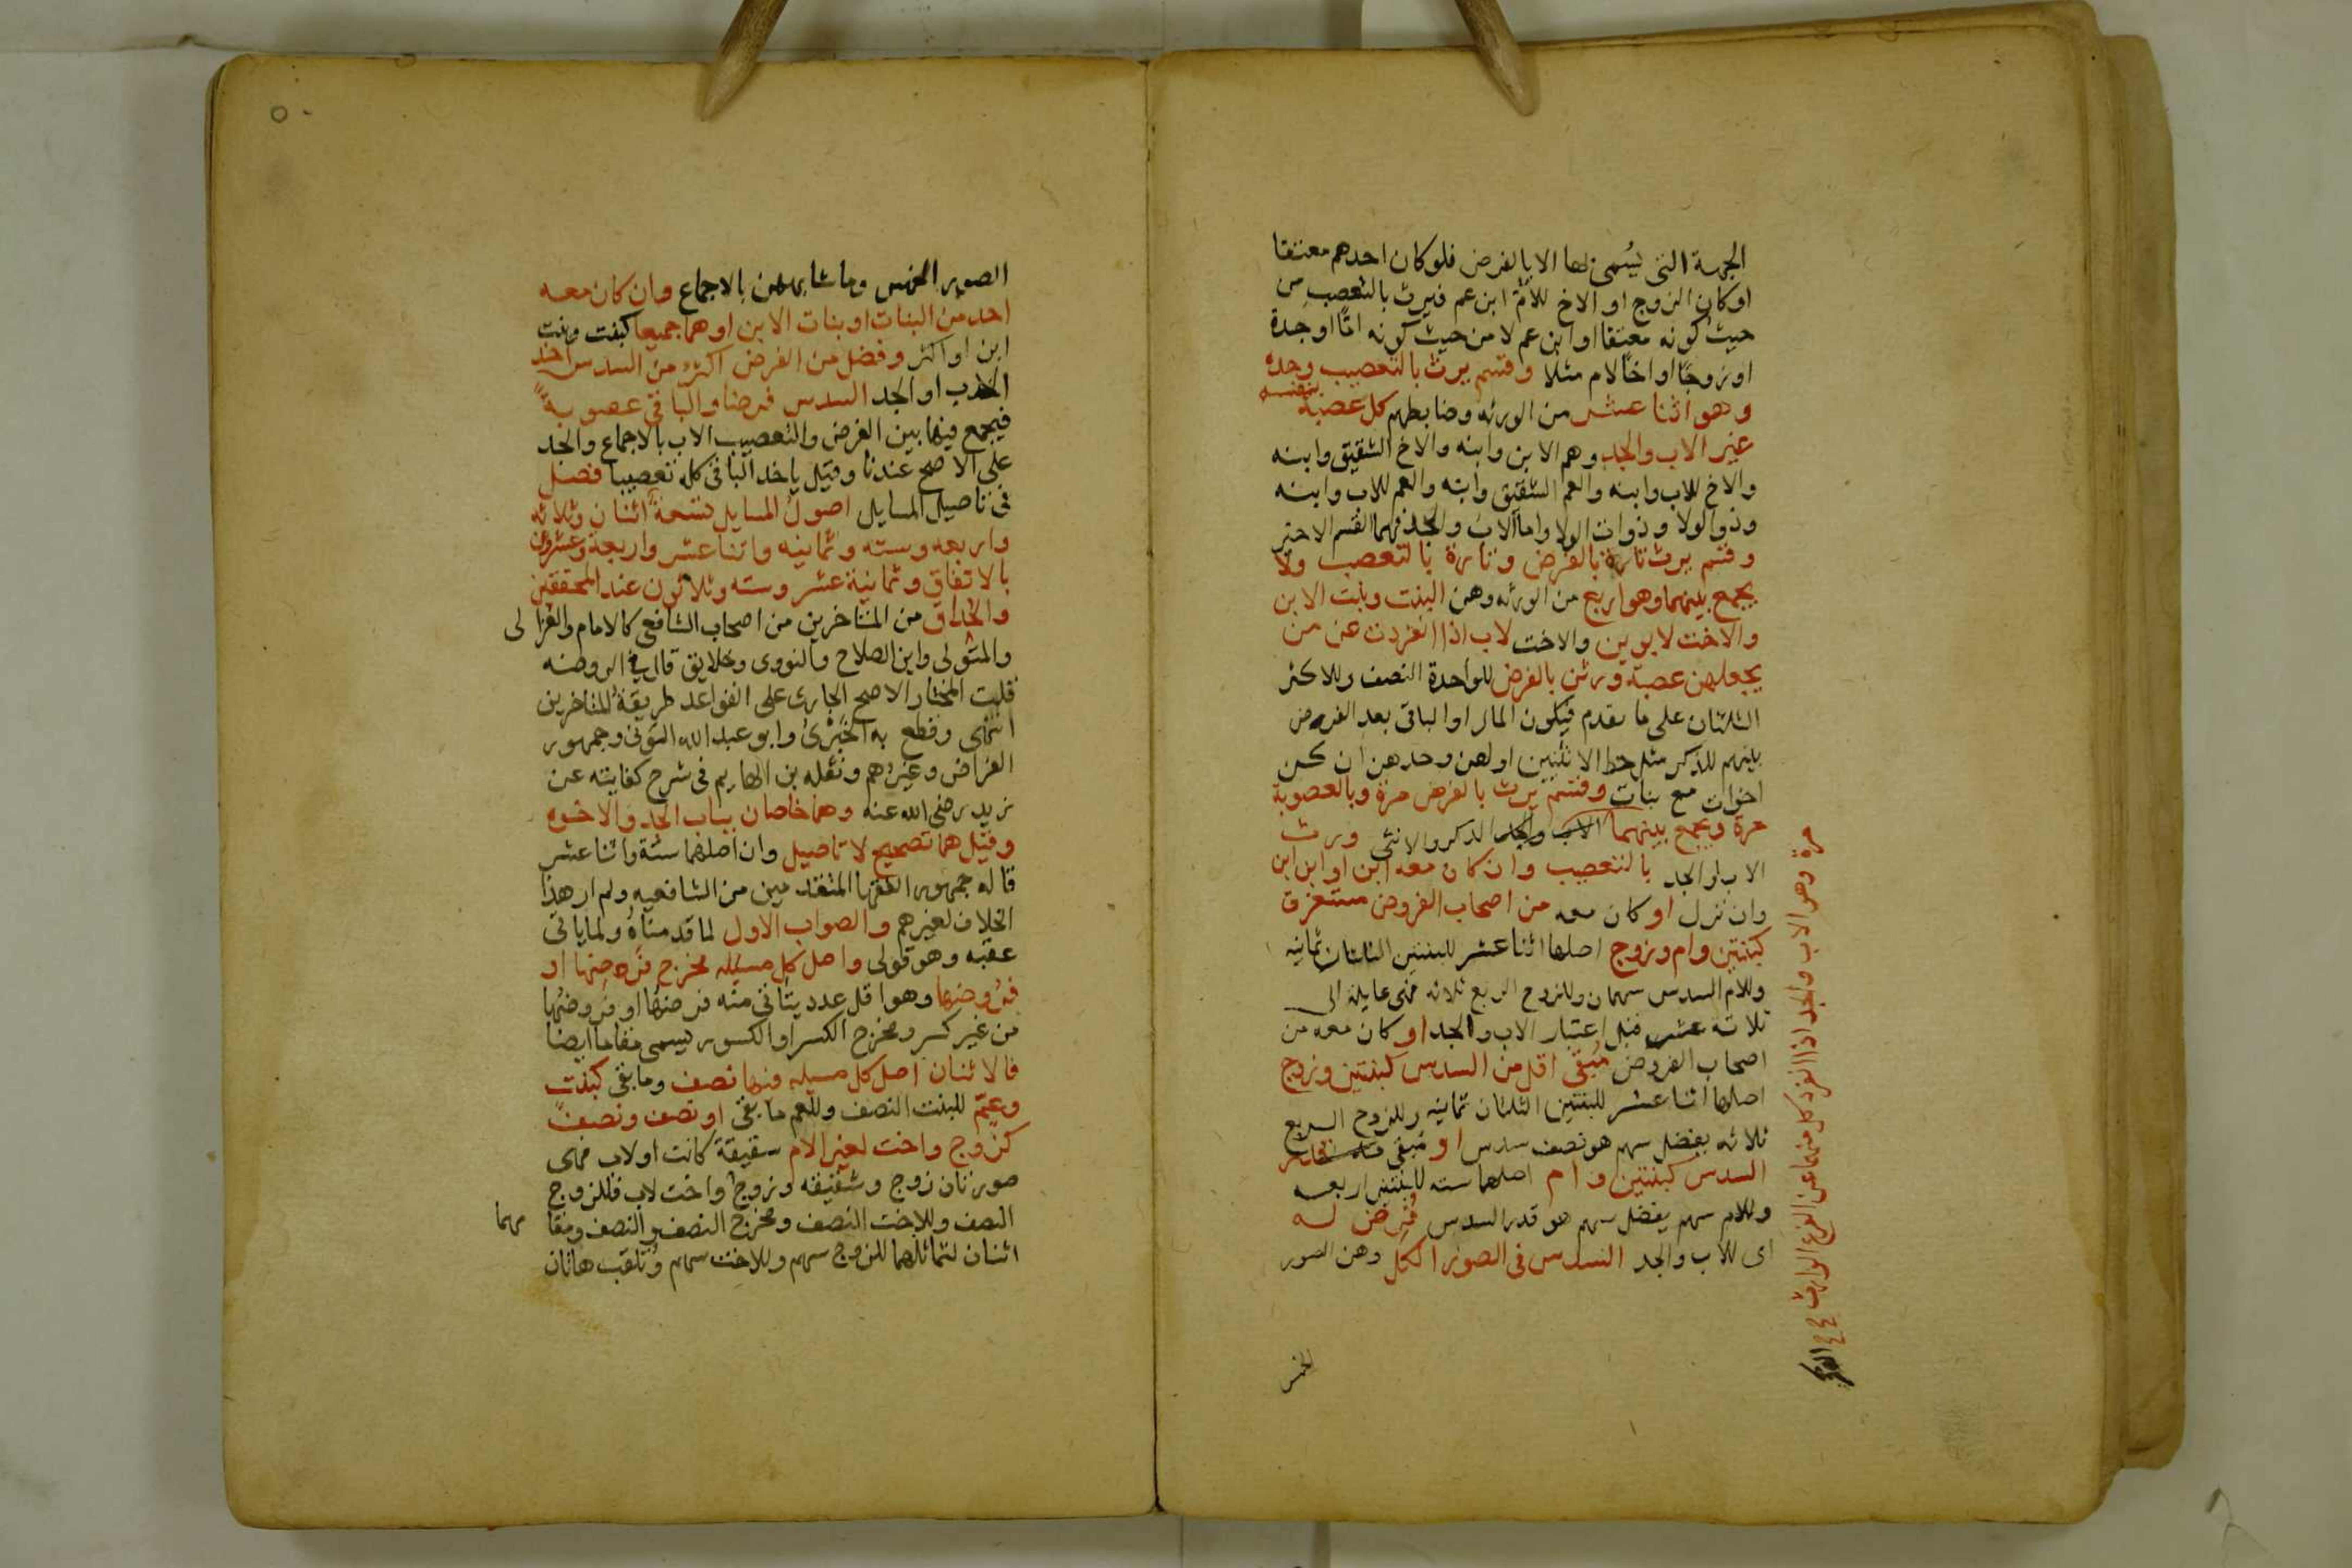 الجهة التى يسمى لها الا بالفرض فلو كان احدهم معتقا
او كان الزوج او الاخ للام ابن عم فيرث بالتعصيب من
حيث كونه معتقا او ابن عم لا من حيث كونه امًا او جدة
او زوجًا او اخا لام مثلا وقسم يرث بالتعصيب وحده
وهو اثنا عشر من الورثه وضابطهم كل عصبة بنفسه
غير الاب والجد وهم الابن وابنه والاخ الشقيق وابنه
والاخ للاب وابنه والعم الشقيق وابنه والعم للاب وابنه
وذو الولا وذوات الولا واما الاب والجد فهما القسم الاخير
وقسم يرث تارة بالفرض وتارة بالتعصيب ولا
يجمع بينهما وهو اربع من الورثه وهن البنت وبنت الابن
والاخت لابوين والاخت لاب اذا انفردت عن من
يجعلهن عصبة ورثن بالفرض للواحدة النصف وللاكثر
الثلثان على ما تقدم فيكون المال او الباقى بعد الفروض
بينهم للذكر مثل حظ الانثيين او لهن وحدهن ان كن
اخوات مع بنات وقسم يرث بالفرض مرة وبالعصوبة
مرة ويجمع بينهما الاب والجد الذكر والانثى ويرث
الاب او الجد بالتعصيب وان كان معه ابن او ابن ابن
وان نزل او كان معه من اصحاب الفروض مستغرق
كبنتين وام وزوج اصلها اثنا عشر للبنتين الثلثان ثمانيه
وللام السدس سهمان وللزوج الربع ثلاثه فهى عايلة الى
ثلاثة عشر قبل اعتبار الاب والجد او كان معه من
اصحاب الفروض مبقى اقل من السدس كبنتين وزوج
اصلها اثنا عشر للبنتين الثلثان ثمانيه وللزوج الربع
ثلاثه يفضل سهم هو نصف سدس او مبقى قدر
السدس كبنتين وام اصلها سته للبنتين اربعه
وللام سهم يفضل سهم هو قدر السدس فرض له
اى للاب والجد السدس فى الصور الكل وهن الصور
الخمس
مرة وهو الاب والجد اذا انفرد كل منهما عن الفرع الوارث
الصور الخمس وما شابههن بالاجماع وان كان معه
احد من البنات او بنات الابن او هما جميعا كبنت وبنت
ابن او اكثر وفضل من الفرض اكثر من السدس اخذ
الاب او الجد السدس فرضا والباقى عصوبةً
فيجمع فيهما بين الفرض والتعصيب الاب بالاجماع والجد
على الاصح عندنا وقيل ياخذ الباقى كله تعصيبا فصل
فى تاصيل المسايل اصول المسايل تسعة اثنان وثلاثه
واربعه وسته وثمانيه واثنا عشر واربعة وعشرون
بالاتفاق وثمانية عشر وسته وثلاثون عند المحققين
والحذاق من المتاخرين من اصحاب الشافعى كالامام والغزالى
والمتولى وابن الصلاح والنووى وخلايق قال فى الروضه
قلت المختار الاصح الجارى على القواعد طريقة المتاخرين
انتهى وقطع به الخبرى وابو عبد الله التونى وجمهور
الفراض وغيرهم ونقله بن الهايم فى شرح كفايته عن
زيد رضى الله عنه وهما خاصان بباب الجد والاخوه
وقيل هما تصحيح لا تاصيل وان اصلهما ستة واثنا عشر
قاله جمهور الفقها المتقدمين من الشافعيه ولم ار هذا
الخلاف لغيرهم والصواب الاول لما قدمناه ولما ياتى
عقبه وهو قولى واصل كل مسيله مخرج فرضها او
فروضها وهو اقل عدد يتاتى منه فرضها او فروضها
من غير كسر ومخرج الكسر او الكسور يسمى مقاما ايضا
فالاثنان اصل كل مسيله فيها نصف وما بقى كبنت
وعمّ للبنت النصف وللعم ما بقى او نصف ونصف
كزوج واخت لغير الام شقيقة كانت او لاب فهى
صورتان زوج وشقيقه وزوج واخت لاب فللزوج
النصف وللاخت النصف ومخرج النصف والنصف ومقامهما
اثنان لتماثلهما للزوج سهم وللاخت سهم وتلقب هاتان